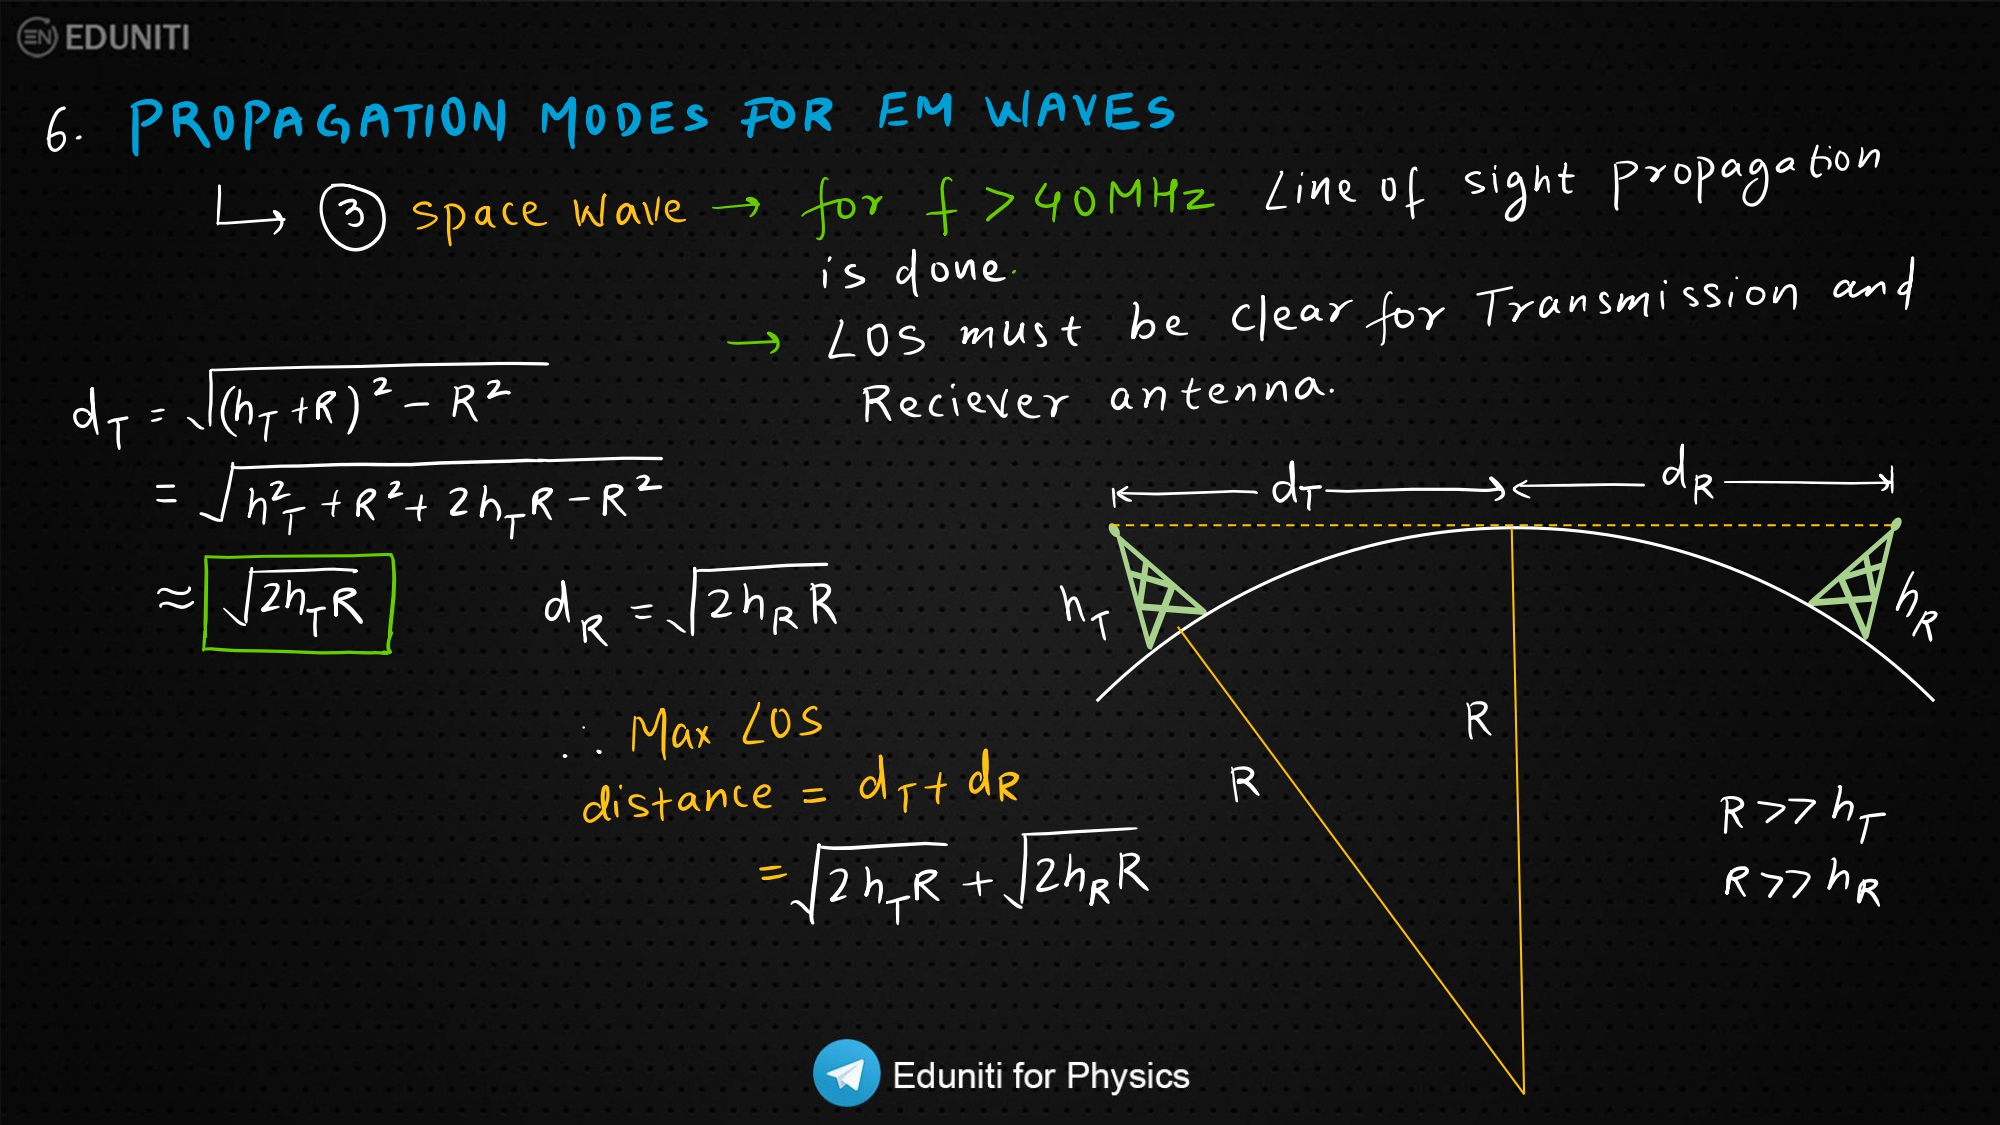 EN EDUNITI
6. PROPAGATION MODES FOR EM WAVES
↳ ③ Space Wave → for f > 40MHz Line of sight propagation
is done.
→ LOS must be clear for Transmission and
Reciever antenna.
d_T = √((h_T + R)² − R²)
= √(h_T² + R² + 2h_T R − R²)
≈ √(2h_T R)
d_R = √(2h_R R)
∴ Max LOS
distance = d_T + d_R
= √(2h_T R) + √(2h_R R)
d_T d_R
h_T h_R
R
R
R >> h_T
R >> h_R
Eduniti for Physics